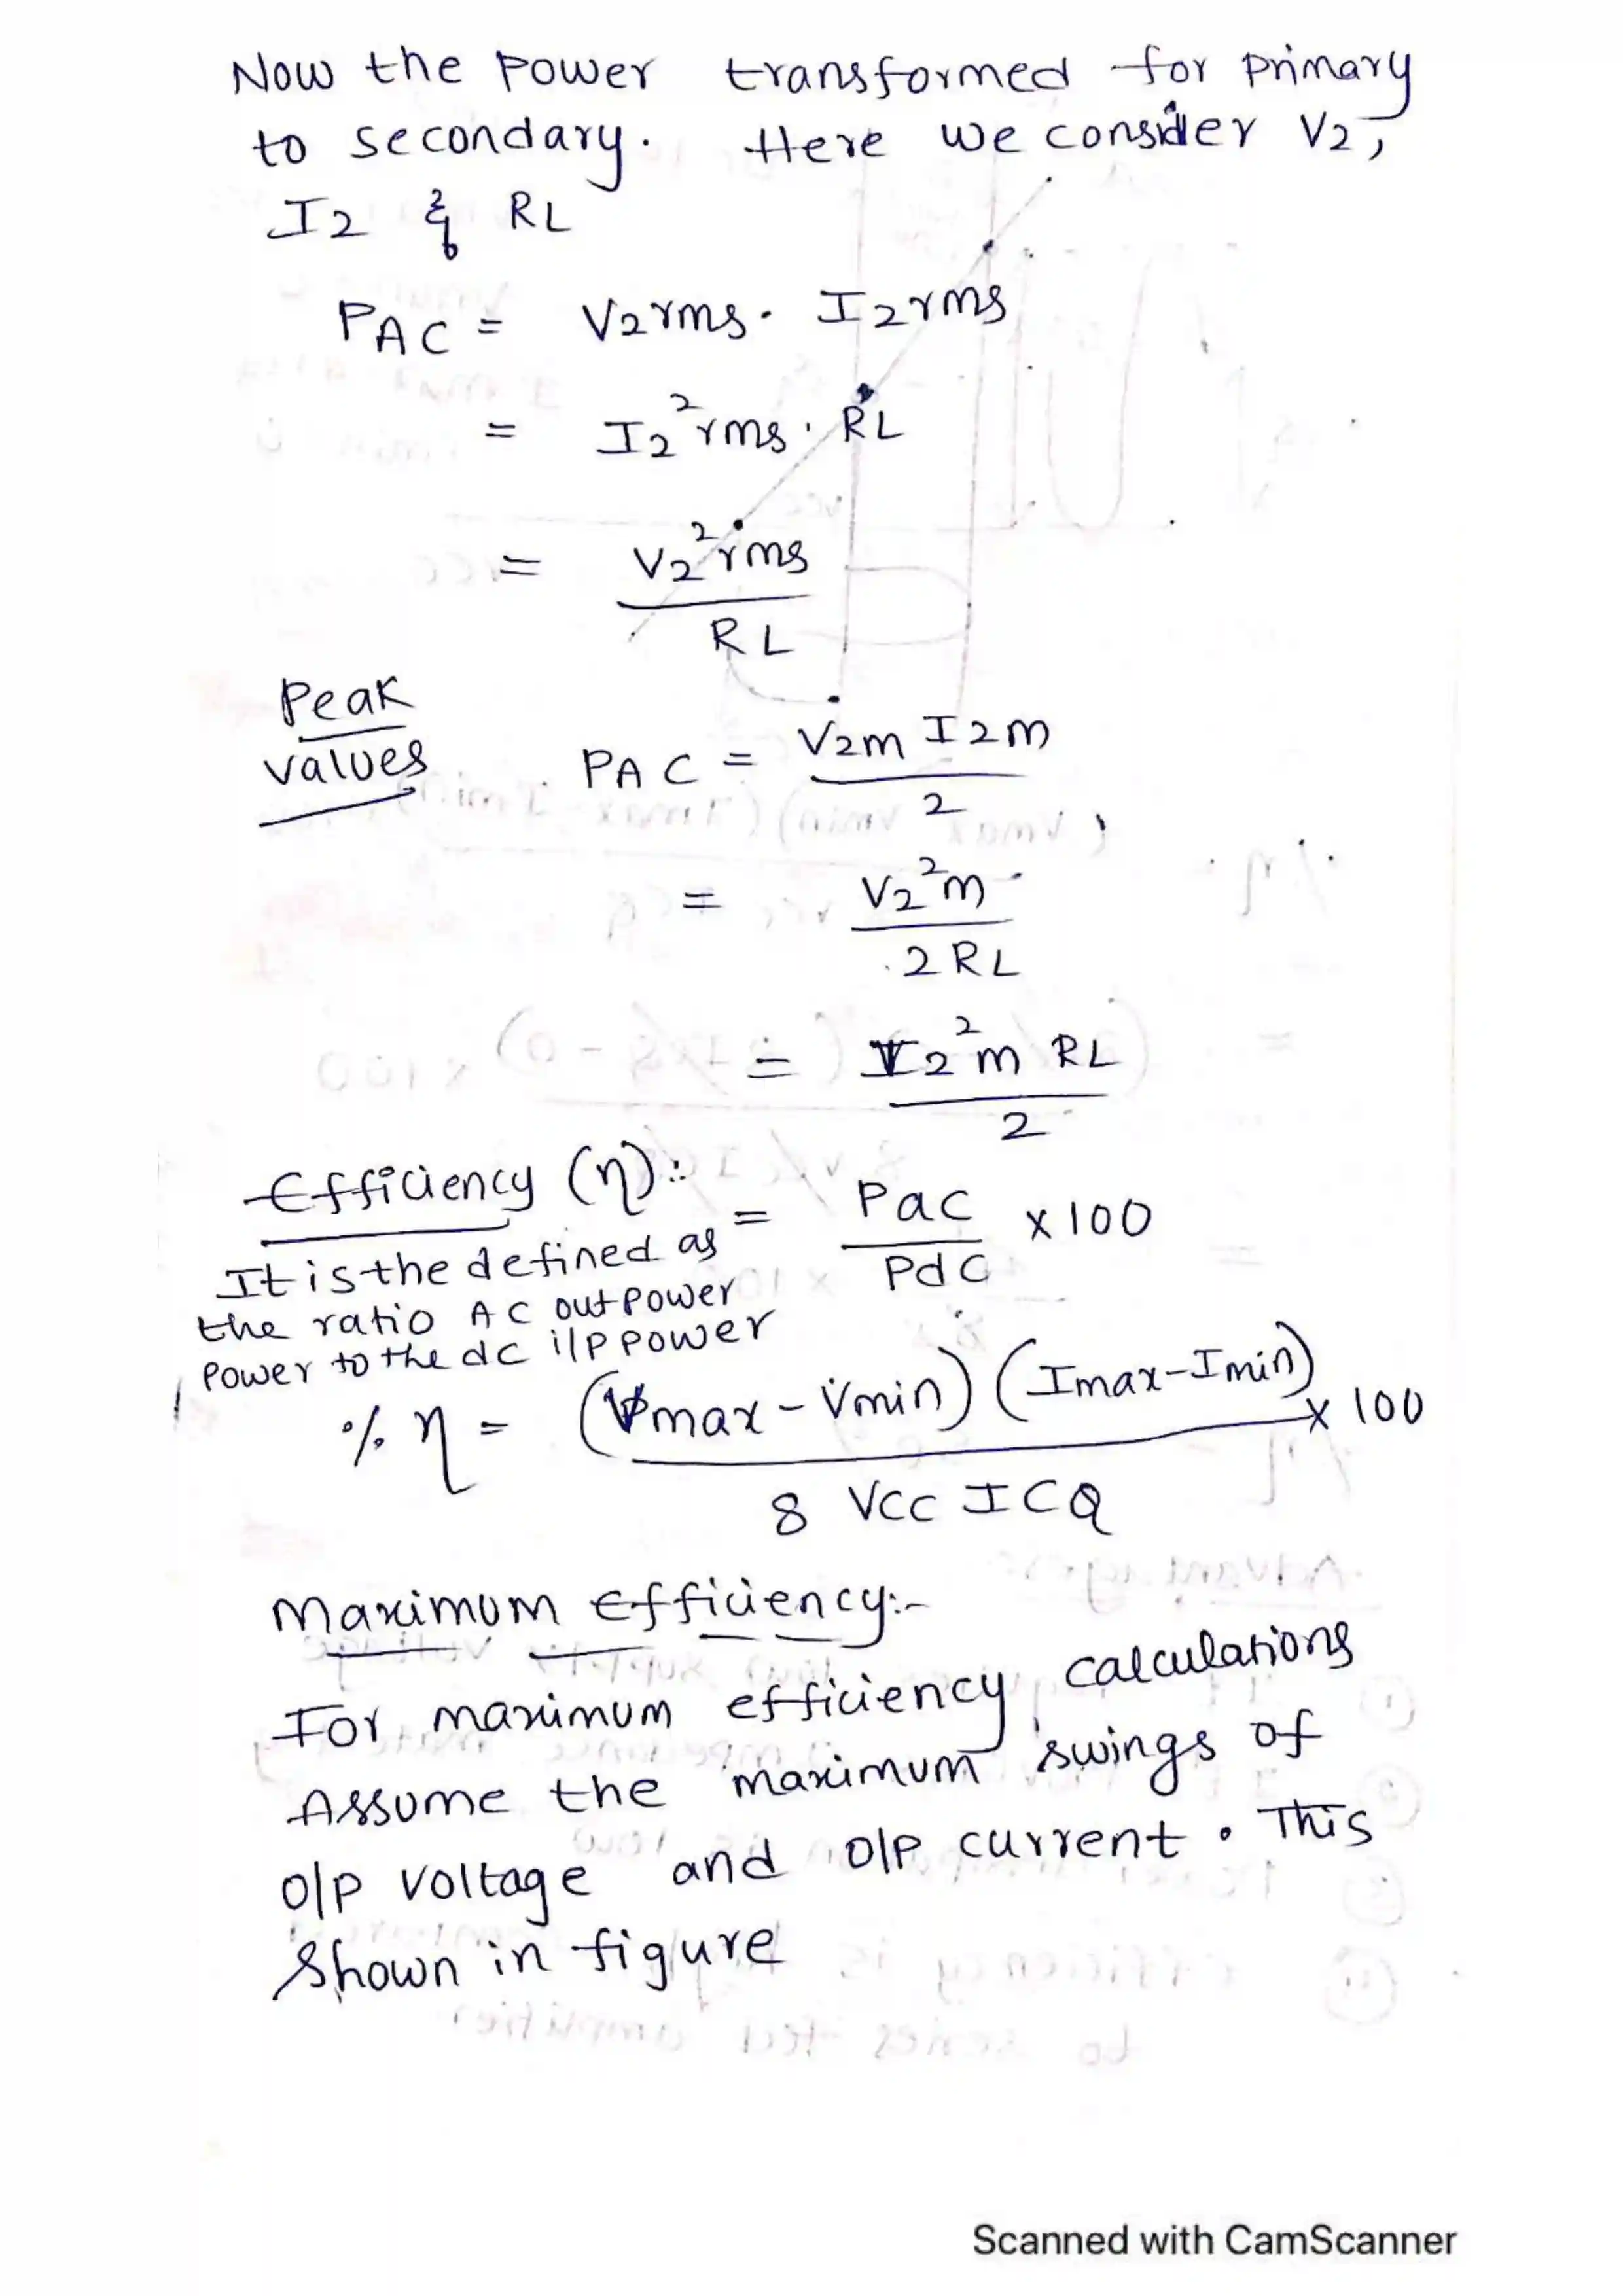 Now the power transformed for primary
to secondary. Here we consider V2,
I2 & RL
PAC = V2rms. I2rms
= I2²rms. RL
= V2²rms
RL
Peak
values
PAC = V2m I2m
2
= V2²m
2RL
= I2²m RL
2
Efficiency (η):- = Pac × 100
Pdc
It is the defined as
the ratio AC outpower
power to the dc i/p power
% η = (Vmax - Vmin) (Imax - Imin) × 100
8 VCC ICQ
Maximum Efficiency:-
For maximum efficiency calculations
Assume the maximum swings of
O/P voltage and O/P current. This
Shown in figure
Scanned with CamScanner